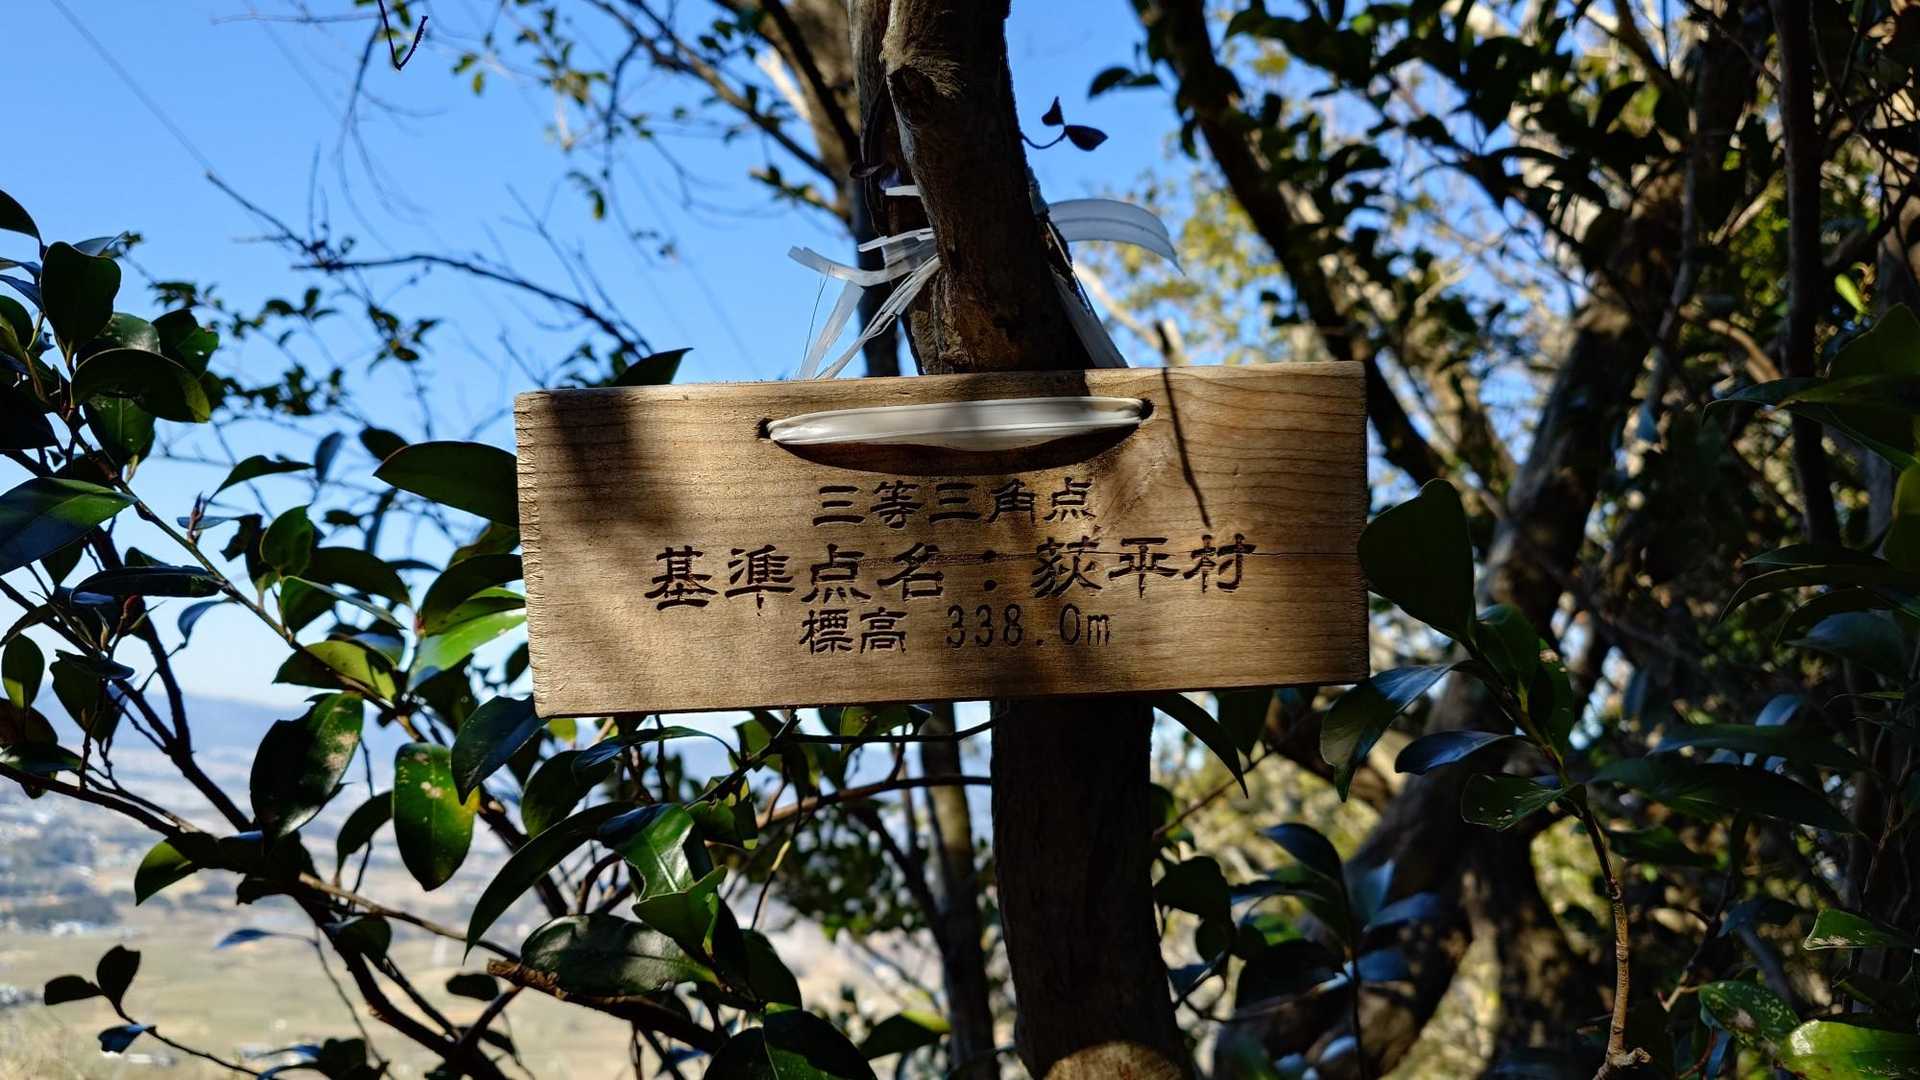 三等三角点
基準点名：荻平村
標高 338.0m